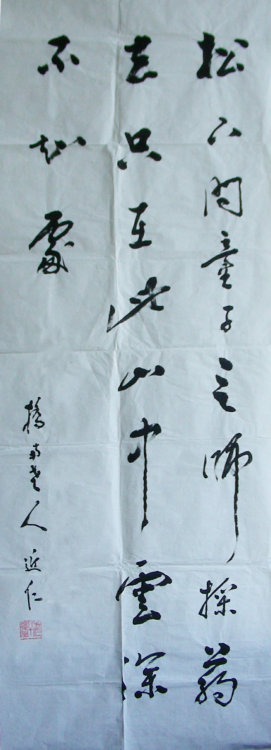 松下問童子言師採藥
去只在此山中雲深
不知處
橋南老人 近仁